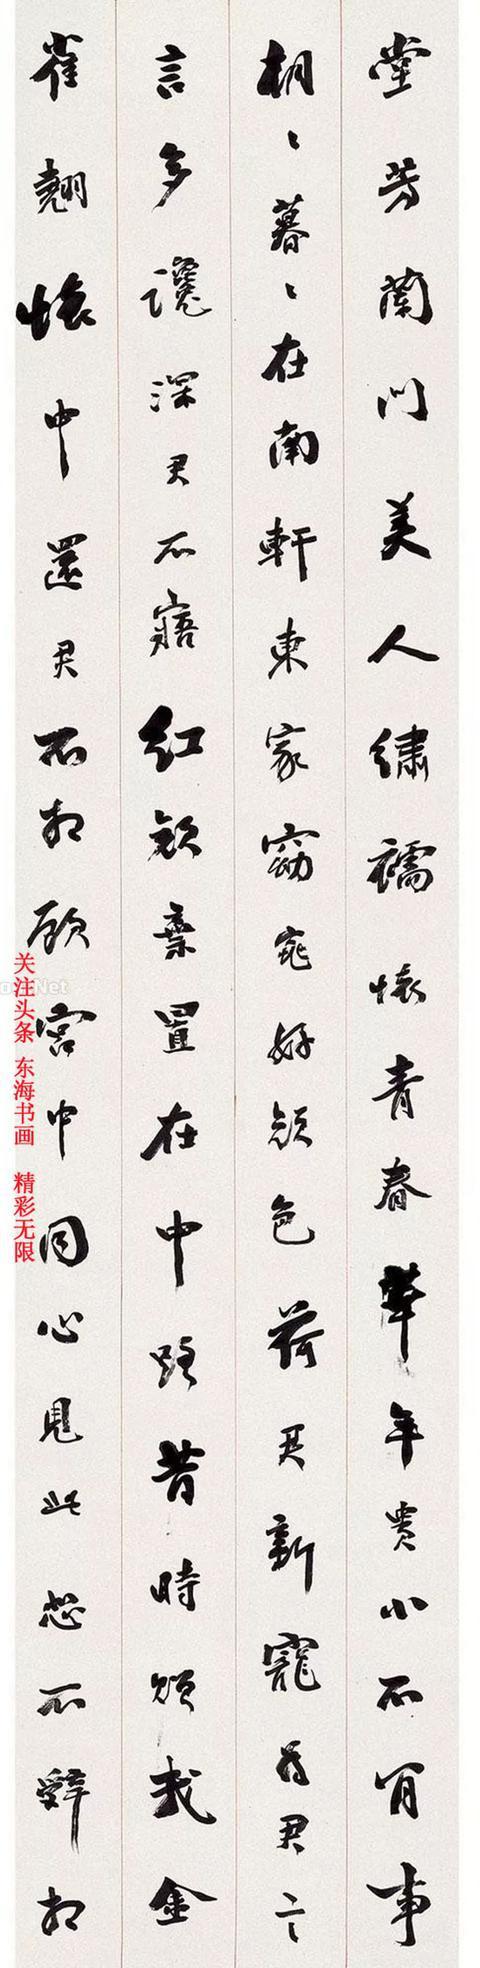 堂芳蘭门美人繡襦懷青春華年貴小不閒事
朝々暮々在南軒東家窈窕好顏色荷君新寵為君言
言多讒深君不寤紅顏棄置在中路昔時顧我金
雀翹懷中還君不相顧宮中同心見此怨不辭相
关注头条 东海书画 精彩无限